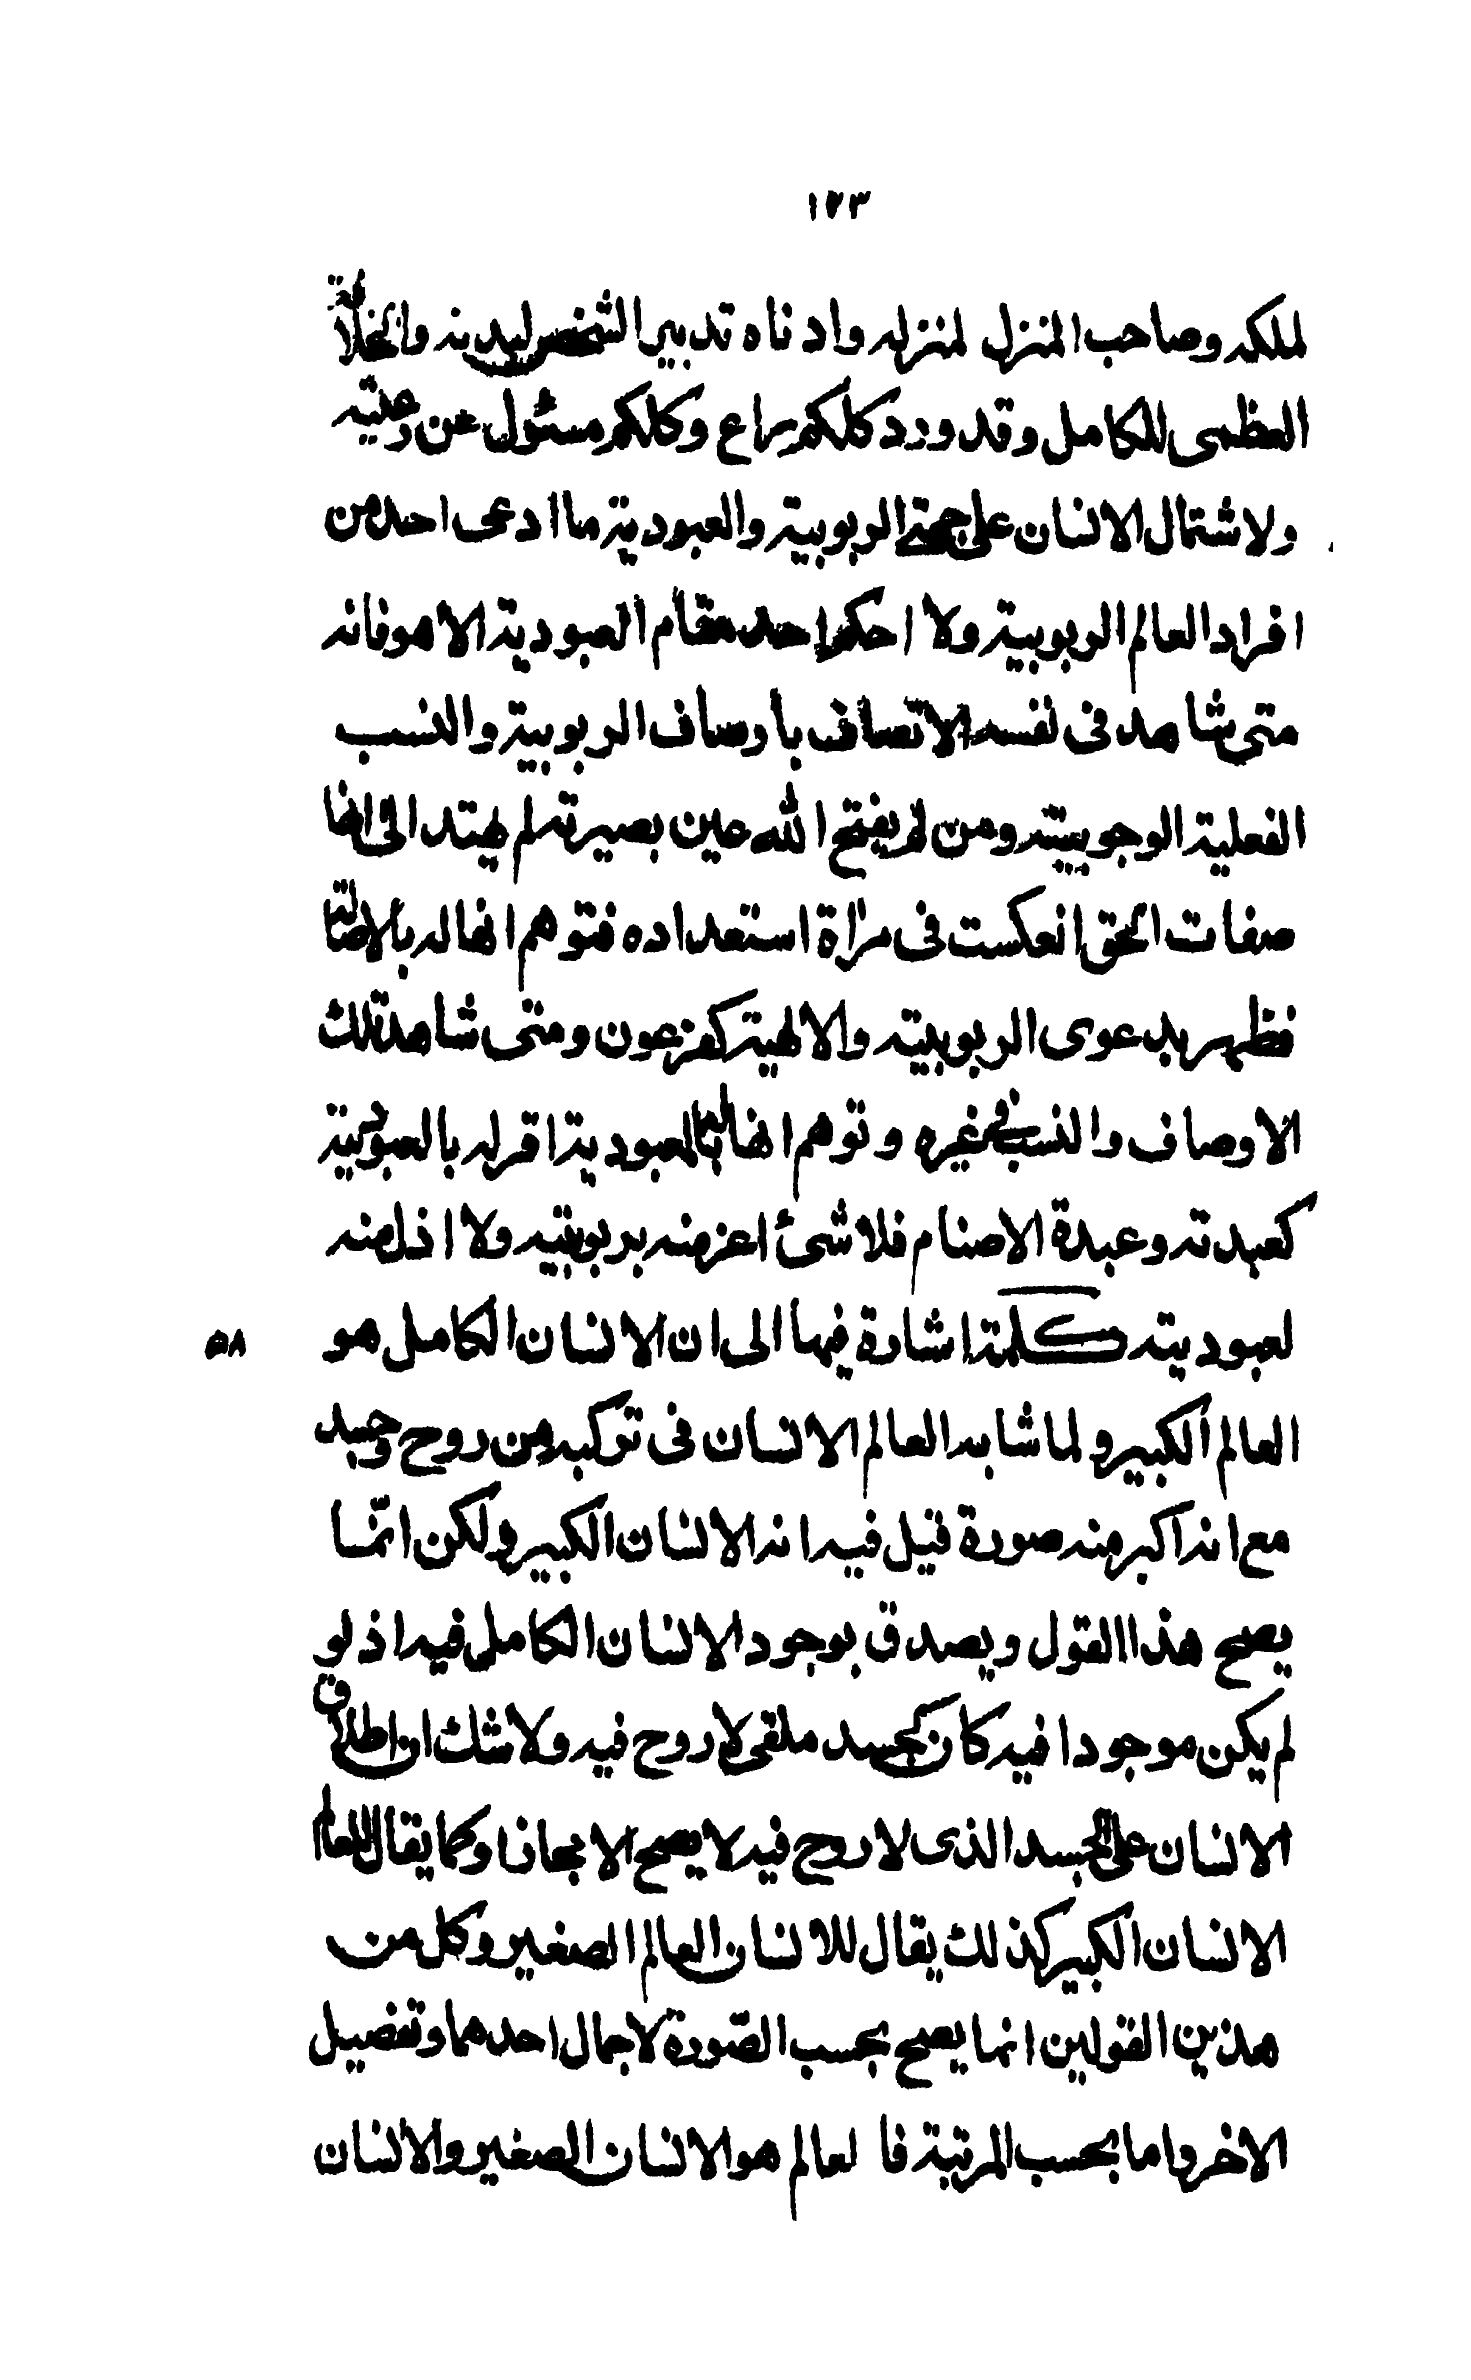 ١٢٣
لملكه وصاحب المنزل لمنزله وادناه تدبير الشخص لبدنه والخلافة
العظمى للكامل وقد ورد كلكم راع وكلكم مسئول عن رعيته
ولاشتمال الانسان على جهتى الربوبية والعبودية ما ادعى احد من
افراد العالم الربوبية ولا احكم احد مقام العبودية الا هو فانه
متى شاهد فى نفسه الاتصاف باوصاف الربوبية والنسب
الفعلية الوجوبيته ومن لم يفتح الله عين بصيرته لم يهتد الى انها
صفات الحق انعكست فى مراة استعداده فتوهم انها له بالاصالة
فظهر بدعوى الربوبيته والالهية كفرعون ومتى شاهد تلك
الاوصاف والنسب فى غيره وتوهم انها العبودية اقر له بالعبودية
كعبدته وعبدة الاصنام فلا شئ اعز منه بربوبيته ولا اذل منه
لعبوديته كلمة اشارة فيها الى ان الانسان الكامل هو
٥٨
العالم الكبير ولما شابه العالم الانسان فى تركبه من روح وجسد
مع انه اكبر منه صورة قيل فيه انه الانسان الكبير ولكن انّما
يصح هذا القول ويصدق بوجود الانسان الكامل فيه اذ لو
لم يكن موجودا فيه كان كجسد ملقى لا روح فيه ولا شك ان اطلاق
الانسان على الجسد الذى لا روح فيه لا يصح الا مجازا وكما يقال للعالم
الانسان الكبير كذلك يقال للانسان العالم الصغير وكل من
هذين القولين انما يصح بحسب الصّورة لاجمال احدهما وتفصيل
الاخر واما بحسب المرتبة فالعالم هو الانسان الصغير والانسان